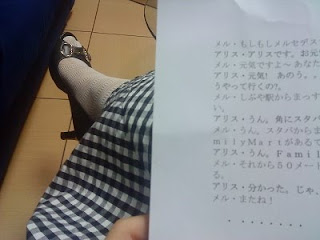 メル・もしもしメルセデス
アリス・アリスです。お元
メル・元気ですよ～ あなた
アリス・元気! あのう。
うやって行くの?。
メル・しぶや駅からまっす
い。
アリス・うん。角にスタバ
メル・うん。スタバからま
milyMartがあるで
アリス・うん。Famil
メル・それから50メート
る。
アリス・分かった。じゃ、
メル・またね!